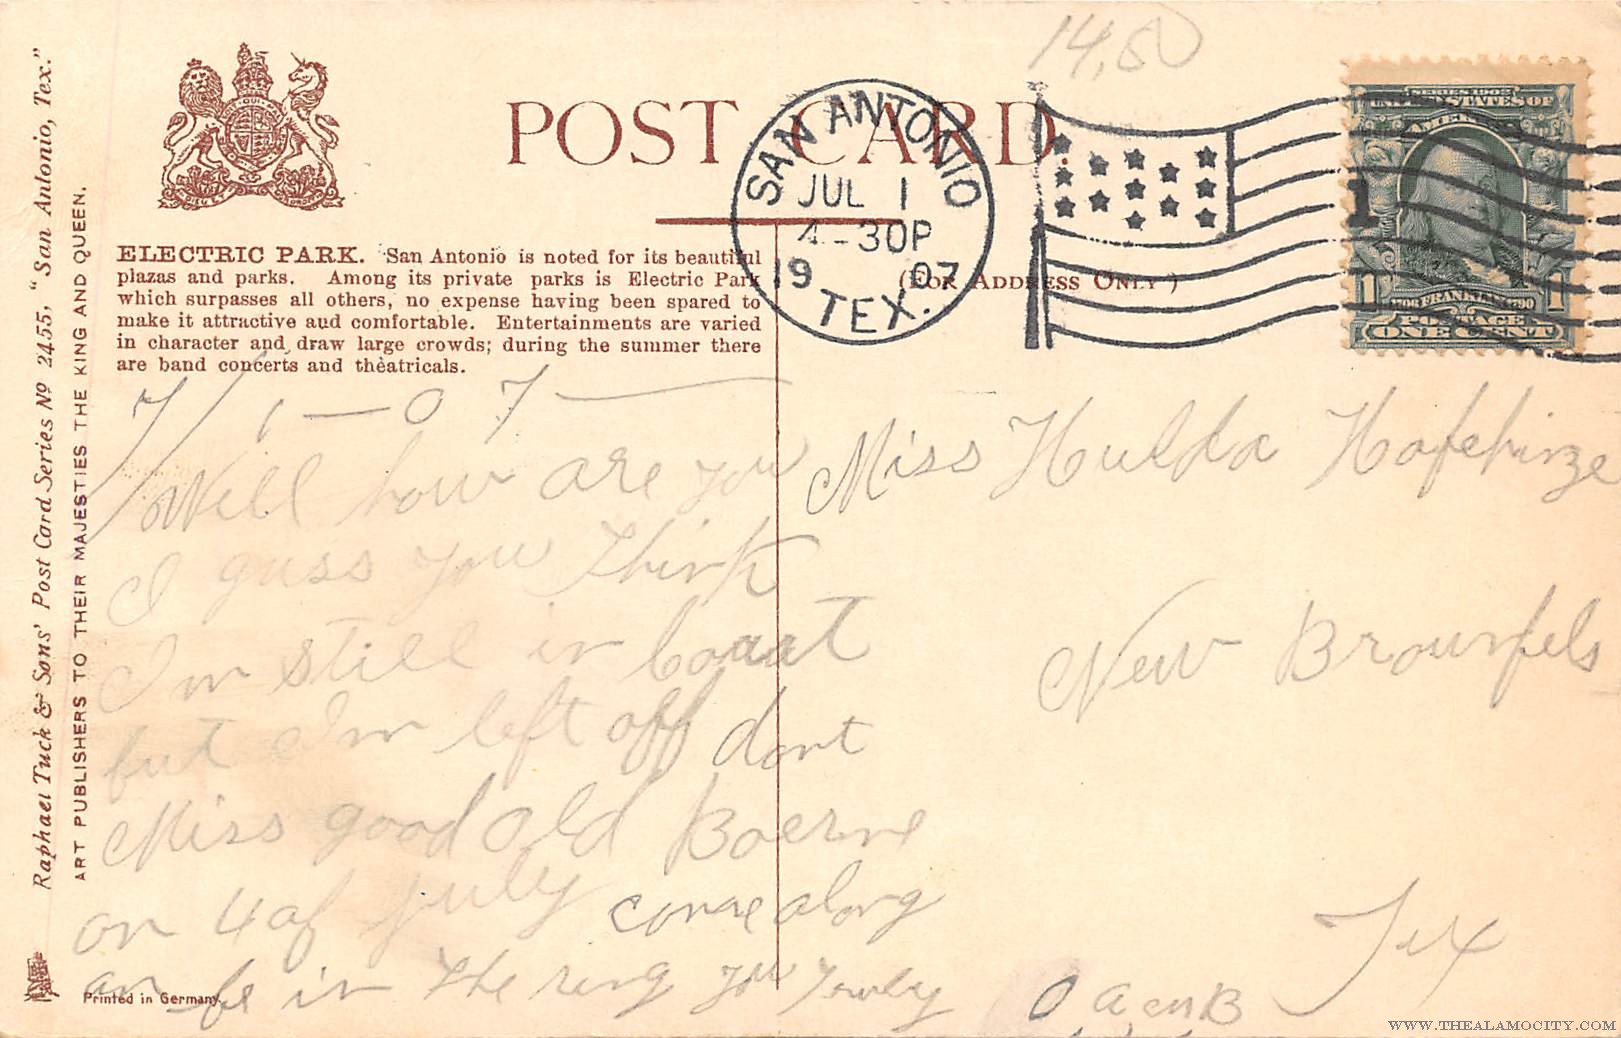 14,50
POST CARD.
SAN ANTONIO
JUL 1
4-30P
19 07
TEX.
SERIES 1902
UNITED STATES OF
AMERICA
1 1
FRANKLIN
POSTAGE
ONE CENT
1
ELECTRIC PARK. San Antonio is noted for its beautiful
plazas and parks. Among its private parks is Electric Park
which surpasses all others, no expense having been spared to
make it attractive aud comfortable. Entertainments are varied
in character and draw large crowds; during the summer there
are band concerts and theatricals.
(For Address Only)
Raphael Tuck & Sons' Post Card Series No 2455, "San Antonio, Tex."
ART PUBLISHERS TO THEIR MAJESTIES THE KING AND QUEEN.
7/1-07-
Well how are you
I guss you think
I'm still in
but I'm left off dont
Miss good old Boerne
on 4 of July come along
an be in the ring you
Printed in Germany
Miss Hulda
New Brounfels
Tex
WWW.THEALAMOCITY.COM